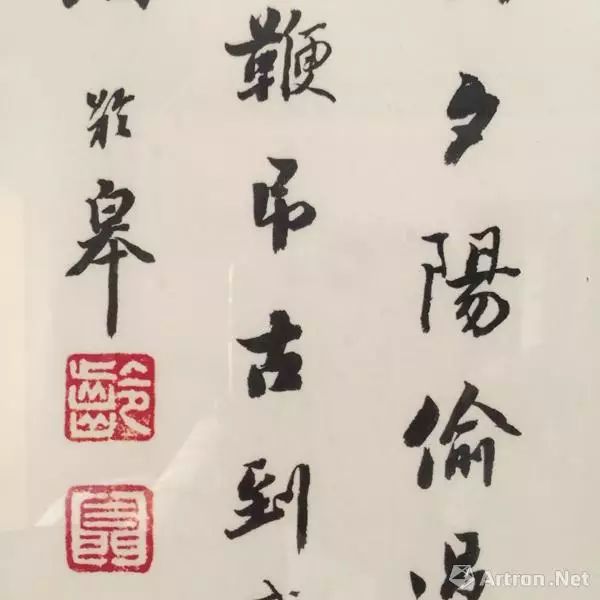 夕陽偷
鞭吊古到
於皋
齡
Artron.Net